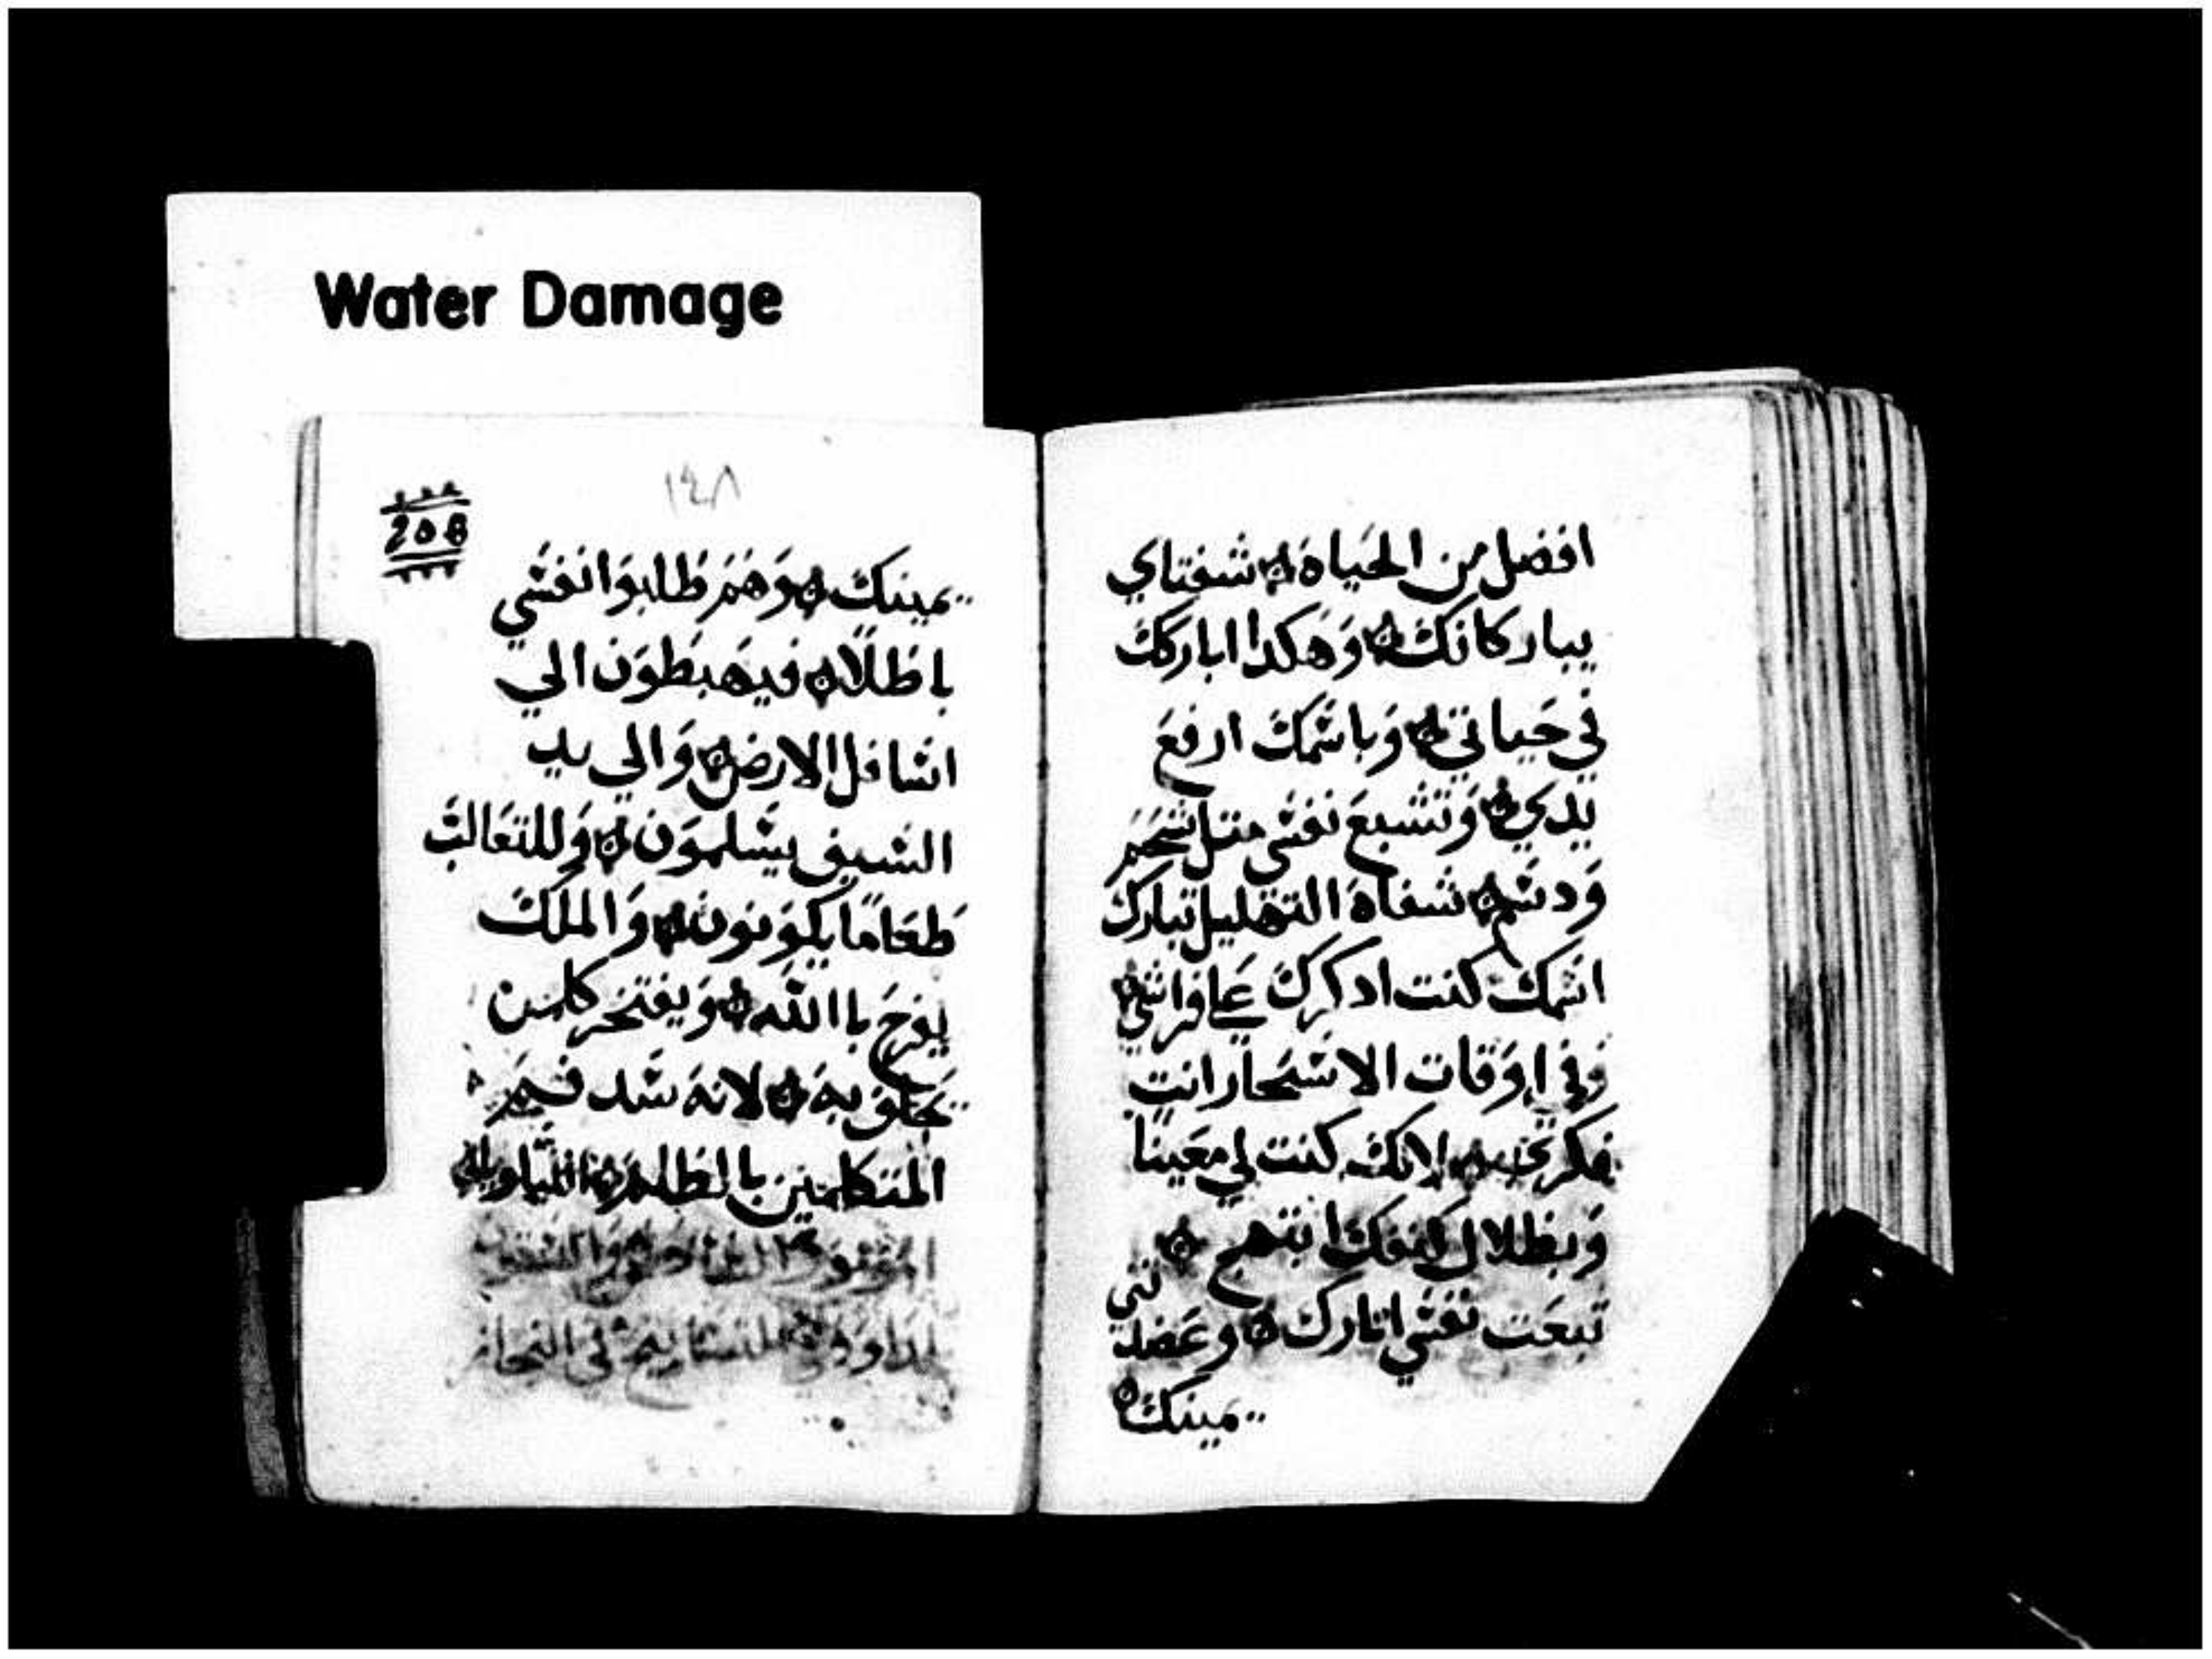 Water Damage
افضل من الحياة شفتاي
يباركانك وهكدا اباركك
في حياتي وباسمك ارفع
يدي وتشبع نفسي متل شحم
ودسم شفاة التهليل تبارك
اسمك كنت ادكرك علي فراشي
وفي اوقات الاسحار انت
لانك كنت لي معينا
وبظلال كنفك ابتهج
تبعت نفسي اتارك وعضدتني
يمينك
١٤٨
208
يمينك وهم طالبوا نفسي
باطلا فيهبطون الي
اسافل الارض والي يد
السيف يسلمون وللتعالب
طعاما يكونون والملك
يفرح باالله ويفتخر كلمن
يحلف به لانه سد فم
المتكلمين بالظلم
لداود في